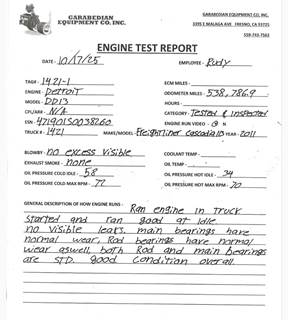 GARABEDIAN
EQUIPMENT CO. INC.
GARABEDIAN EQUIPMENT CO, INC.
3395 E MALAGA AVE FRESNO, CA 93725
559-743-7563
ENGINE TEST REPORT
DATE - 10/17/25
EMPLOYEE - Rudy
TAG# - 1421-1
ECM MILES -
ENGINE - Detroit
ODOMETER MILES - 538,786.9
MODEL - DD13
HOURS -
CPL/ARR - N/A
CATEGORY - Tested & Inspected
ESN - 471901S0038260
ENGINE RUN VIDEO - Y N
TRUCK # - 1421
MAKE/MODEL - Freightliner Cascadia113 YEAR - 2011
BLOWBY - no excess visible
COOLANT TEMP -
EXHAUST SMOKE - none
OIL TEMP -
OIL PRESSURE COLD IDLE - 58
OIL PRESSURE HOT IDLE - 34
OIL PRESSURE COLD MAX RPM - 77
OIL PRESSURE HOT MAX RPM - 70
GENERAL DESCRIPTION OF HOW ENGINE RUNS - Ran engine in truck
started and ran good at idle
no visible leaks, main bearings have
normal wear, Rod bearings have normal
wear aswell, both Rod and main bearings
are STD. good condition overall.